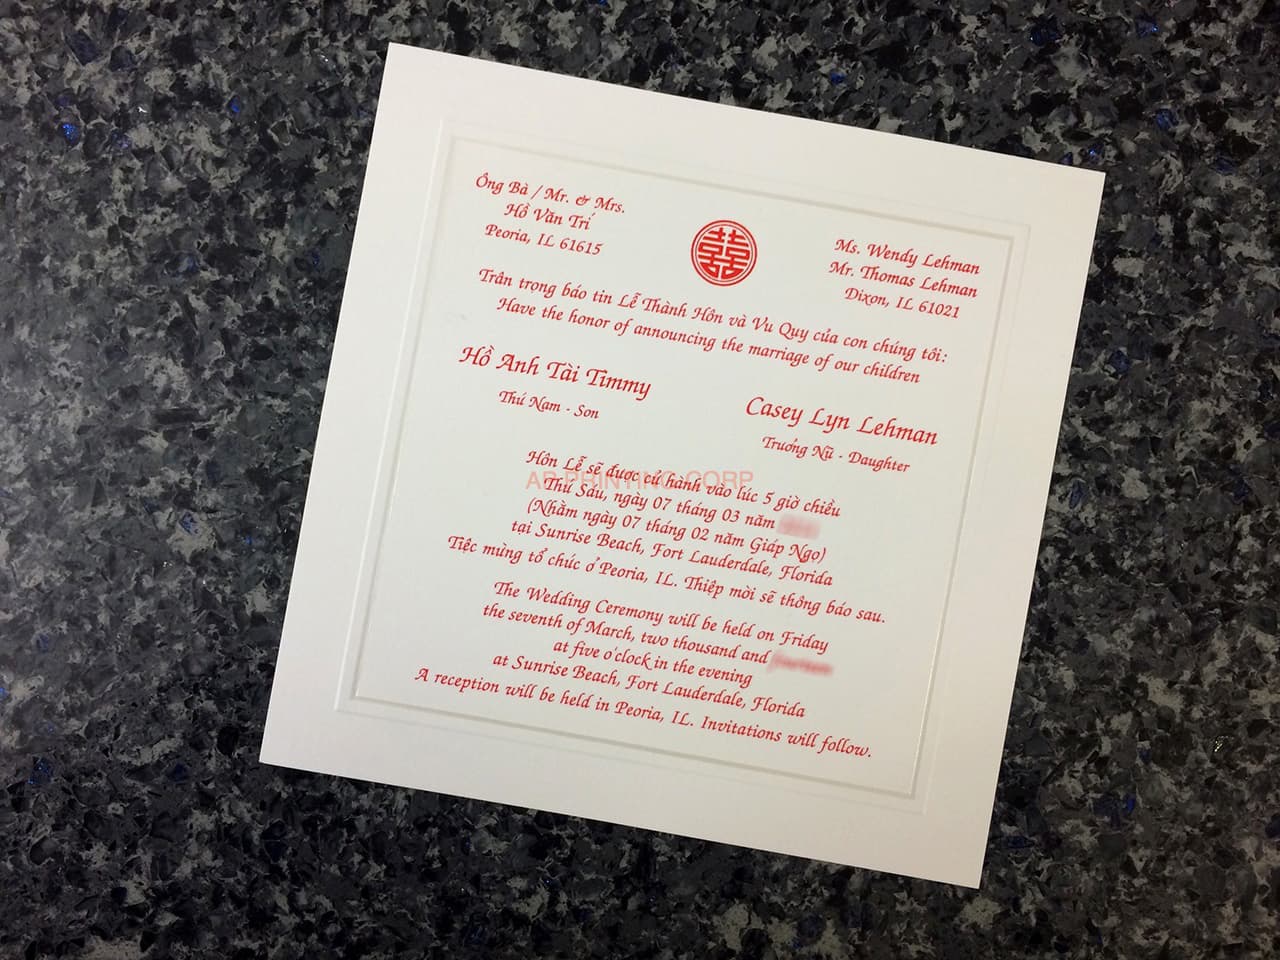 Ông Bà / Mr. & Mrs.
Hồ Văn Trí
Peoria, IL 61615
囍
Ms. Wendy Lehman
Mr. Thomas Lehman
Dixon, IL 61021
Trân trọng báo tin Lễ Thành Hôn và Vu Quy của con chúng tôi:
Have the honor of announcing the marriage of our children
Hồ Anh Tài Timmy
Thứ Nam - Son
Casey Lyn Lehman
Trưởng Nữ - Daughter
Hôn Lễ sẽ được cử hành vào lúc 5 giờ chiều
AB PRINTING CORP
Thứ Sáu, ngày 07 tháng 03 năm
(Nhằm ngày 07 tháng 02 năm Giáp Ngọ)
tại Sunrise Beach, Fort Lauderdale, Florida
Tiệc mừng tổ chức ở Peoria, IL. Thiệp mời sẽ thông báo sau.
The Wedding Ceremony will be held on Friday
the seventh of March, two thousand and
at five o'clock in the evening
at Sunrise Beach, Fort Lauderdale, Florida
A reception will be held in Peoria, IL. Invitations will follow.